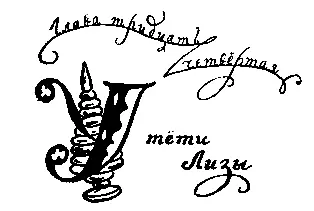 Глава тридцать
четвёртая
У тёти
Лизы